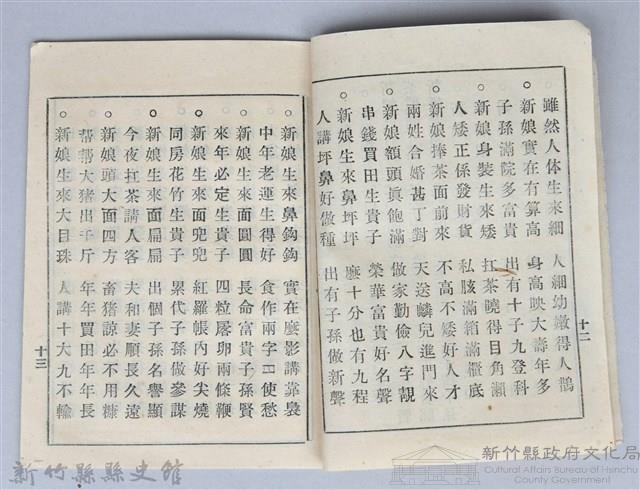 雖然人体生來細　人細幼嫩得人鵲
○新娘實在有算高　身高映大壽年多
子孫滿院多富貴　出有十子九登科
○新娘身裝生來矮　扛茶曉得目角瀨
人矮正係發財貨　私胲滿箱滿櫃底
○新娘捧茶面前來　不高不矮好人才
兩姓合婚甚丁對　天送麟兒進門來
○新娘額頭眞飽滿　做家勤儉八字靚
串錢買田生貴子　榮華富貴好名聲
○新娘生來鼻坪坪　麽十分也有九程
人講坪鼻好做種　出有子孫做新聲
十二
○新娘生來鼻鈎鈎　實在麽影講靠裊
中年老運生得好　食作兩字使愁
○新娘生來面圓圓　長命富貴子孫賢
來年必定生貴子　四粒卵兩條鞭
○新娘生來面兜兜　紅羅帳內好尖燒
同房花竹生貴子　累代子孫做參謀
○新娘生來面扁扁　出個子孫名譽顯
今夜扛茶請人客　夫和妻順長久遠
○新娘頭大面四方　畜猪諒必不用糠
帮帮大猪出千斤　年年買田年年長
○新娘生來大目珠　人講十大九不輸
十三
新竹縣縣史館
新竹縣政府文化局
Cultural Affairs Bureau of Hsinchu
County Government